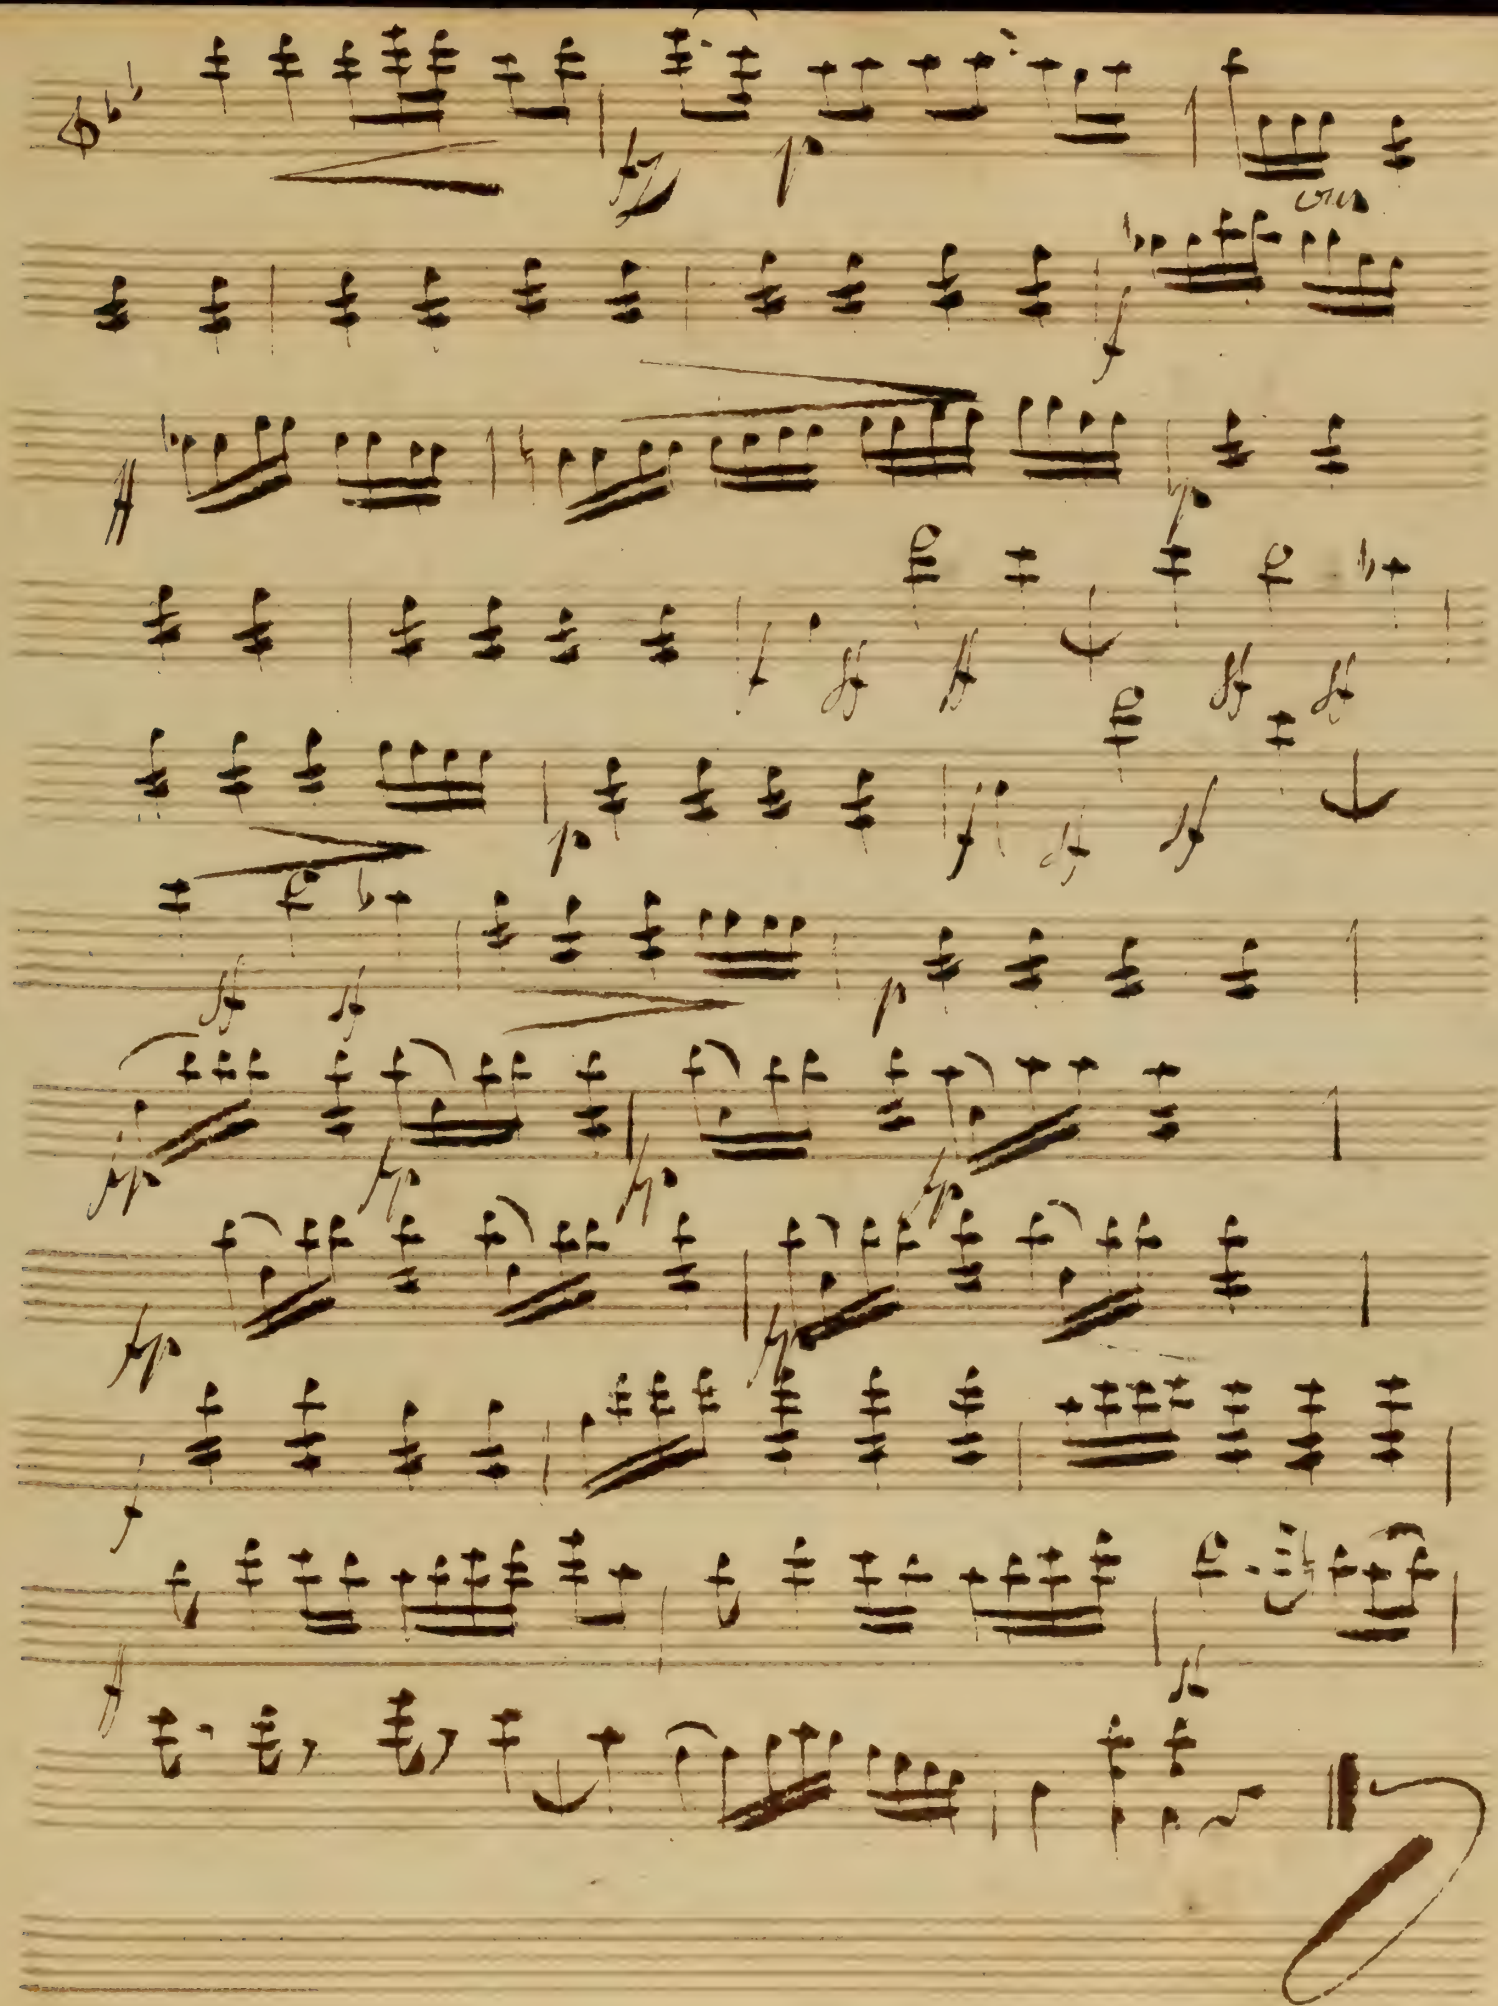 fz p
f
ff p
f sf sf sf sf
p f sf sf
sf sf p
fp fp fp fp
fp fp
f
ff sf